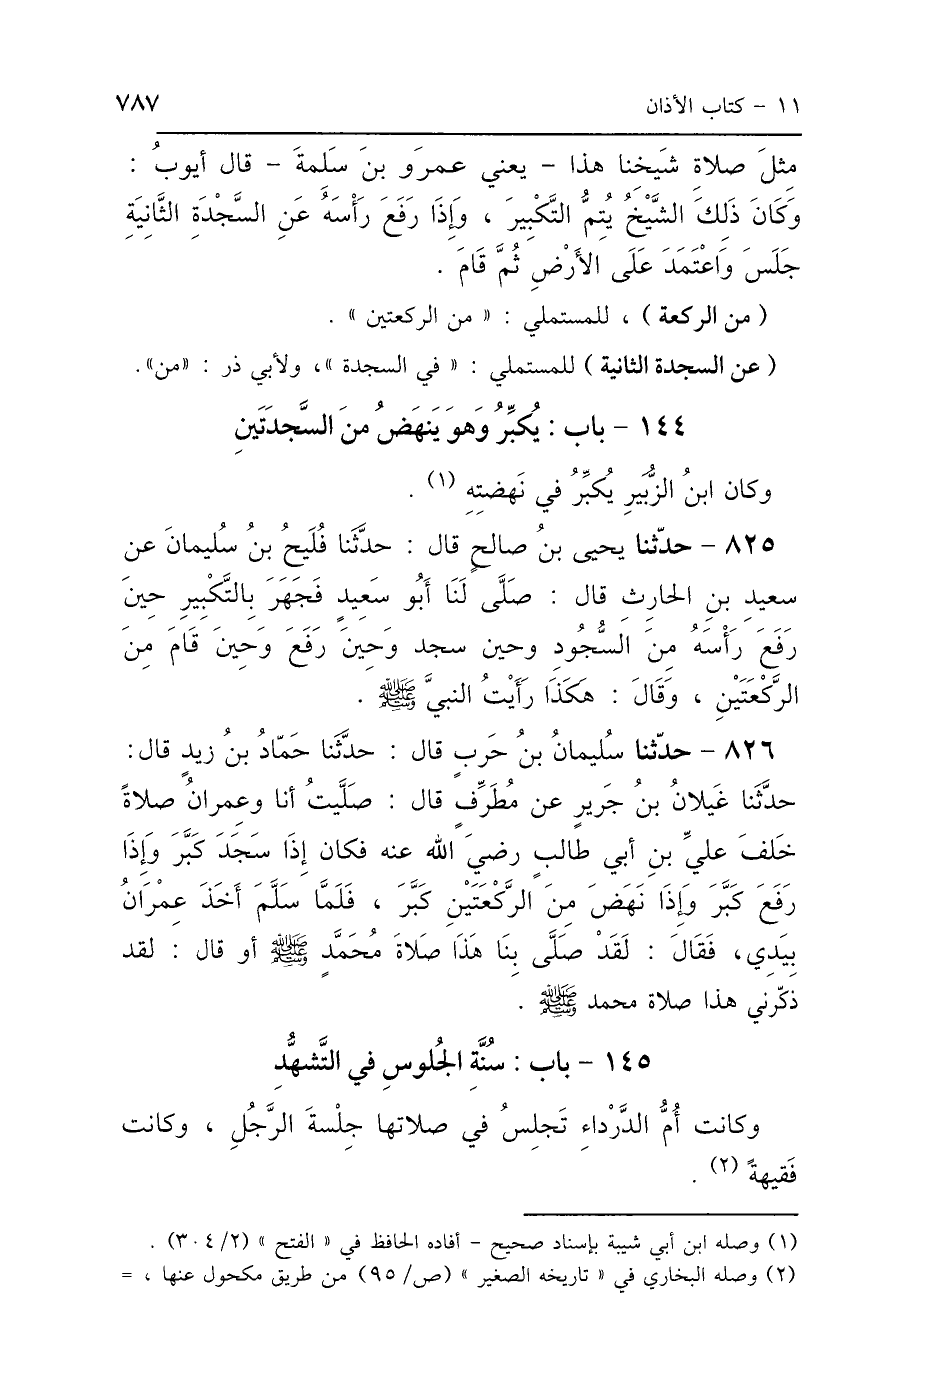 ١١ - كتاب الأذان ٧٨٧
مثلَ صلاةِ شَيخِنا هذا - يعني عمرَو بنَ سَلِمةَ - قال أيوبُ :
وَكَانَ ذَلِكَ الشَّيْخُ يُتِمُّ التَّكْبِيرَ ، وَإِذَا رَفَعَ رَأْسَهُ عَنِ السَّجْدَةِ الثَّانِيَةِ
جَلَسَ وَاعْتَمَدَ عَلَى الأَرْضِ ثُمَّ قَامَ .
( من الركعة ) ، للمستملي : « من الركعتين » .
( عن السجدة الثانية ) للمستملي : « في السجدة »، ولأبي ذر : «من».
١٤٤ - باب : يُكبِّرُ وَهوَ يَنهَضُ منَ السَّجدَتَينِ
وكان ابنُ الزُّبَيرِ يُكبِّرُ في نَهضتِهِ (١) .
٨٢٥ - حدّثنا يحيى بنُ صالحٍ قال : حدَّثَنا فُلَيحُ بنُ سُليمانَ عن
سعيدِ بنِ الحارثِ قال : صَلَّى لَنَا أَبُو سَعِيدٍ فَجَهَرَ بِالتَّكْبِيرِ حِينَ
رَفَعَ رَأْسَهُ مِنَ السُّجُودِ وحين سجد وَحِينَ رَفَعَ وَحِينَ قَامَ مِنَ
الرَّكْعَتَيْنِ ، وَقَالَ : هَكَذَا رَأَيْتُ النبيَّ ﷺ .
٨٢٦ - حدّثنا سُليمانُ بنُ حَربٍ قال : حدَّثَنا حَمّادُ بنُ زيدٍ قال:
حدَّثَنا غَيلانُ بنُ جَريرٍ عن مُطَرِّفٍ قال : صَلَّيتُ أنا وعمرانُ صلاةً
خَلفَ عليِّ بنِ أبي طالبٍ رضيَ الله عنه فكان إِذَا سَجَدَ كَبَّرَ وَإِذَا
رَفَعَ كَبَّرَ وَإِذَا نَهَضَ مِنَ الرَّكْعَتَيْنِ كَبَّرَ ، فَلَمَّا سَلَّمَ أَخَذَ عِمْرَانُ
بِيَدِي، فَقَالَ : لَقَدْ صَلَّى بِنَا هَذَا صَلاةَ مُحَمَّدٍ ﷺ أو قال : لقد
ذكّرني هذا صلاة محمد ﷺ .
١٤٥ - باب : سُنَّةِ الجُلوسِ في التَّشهُّدِ
وكانت أُمُّ الدَّرْداءِ تَجلِسُ في صلاتها جِلْسةَ الرَّجُلِ ، وكانت
فَقيهةً (٢) .
(١) وصله ابن أبي شيبة بإسناد صحيح - أفاده الحافظ في « الفتح » (٢/ ٣٠٤) .
(٢) وصله البخاري في « تاريخه الصغير » (ص/ ٩٥) من طريق مكحول عنها ، =